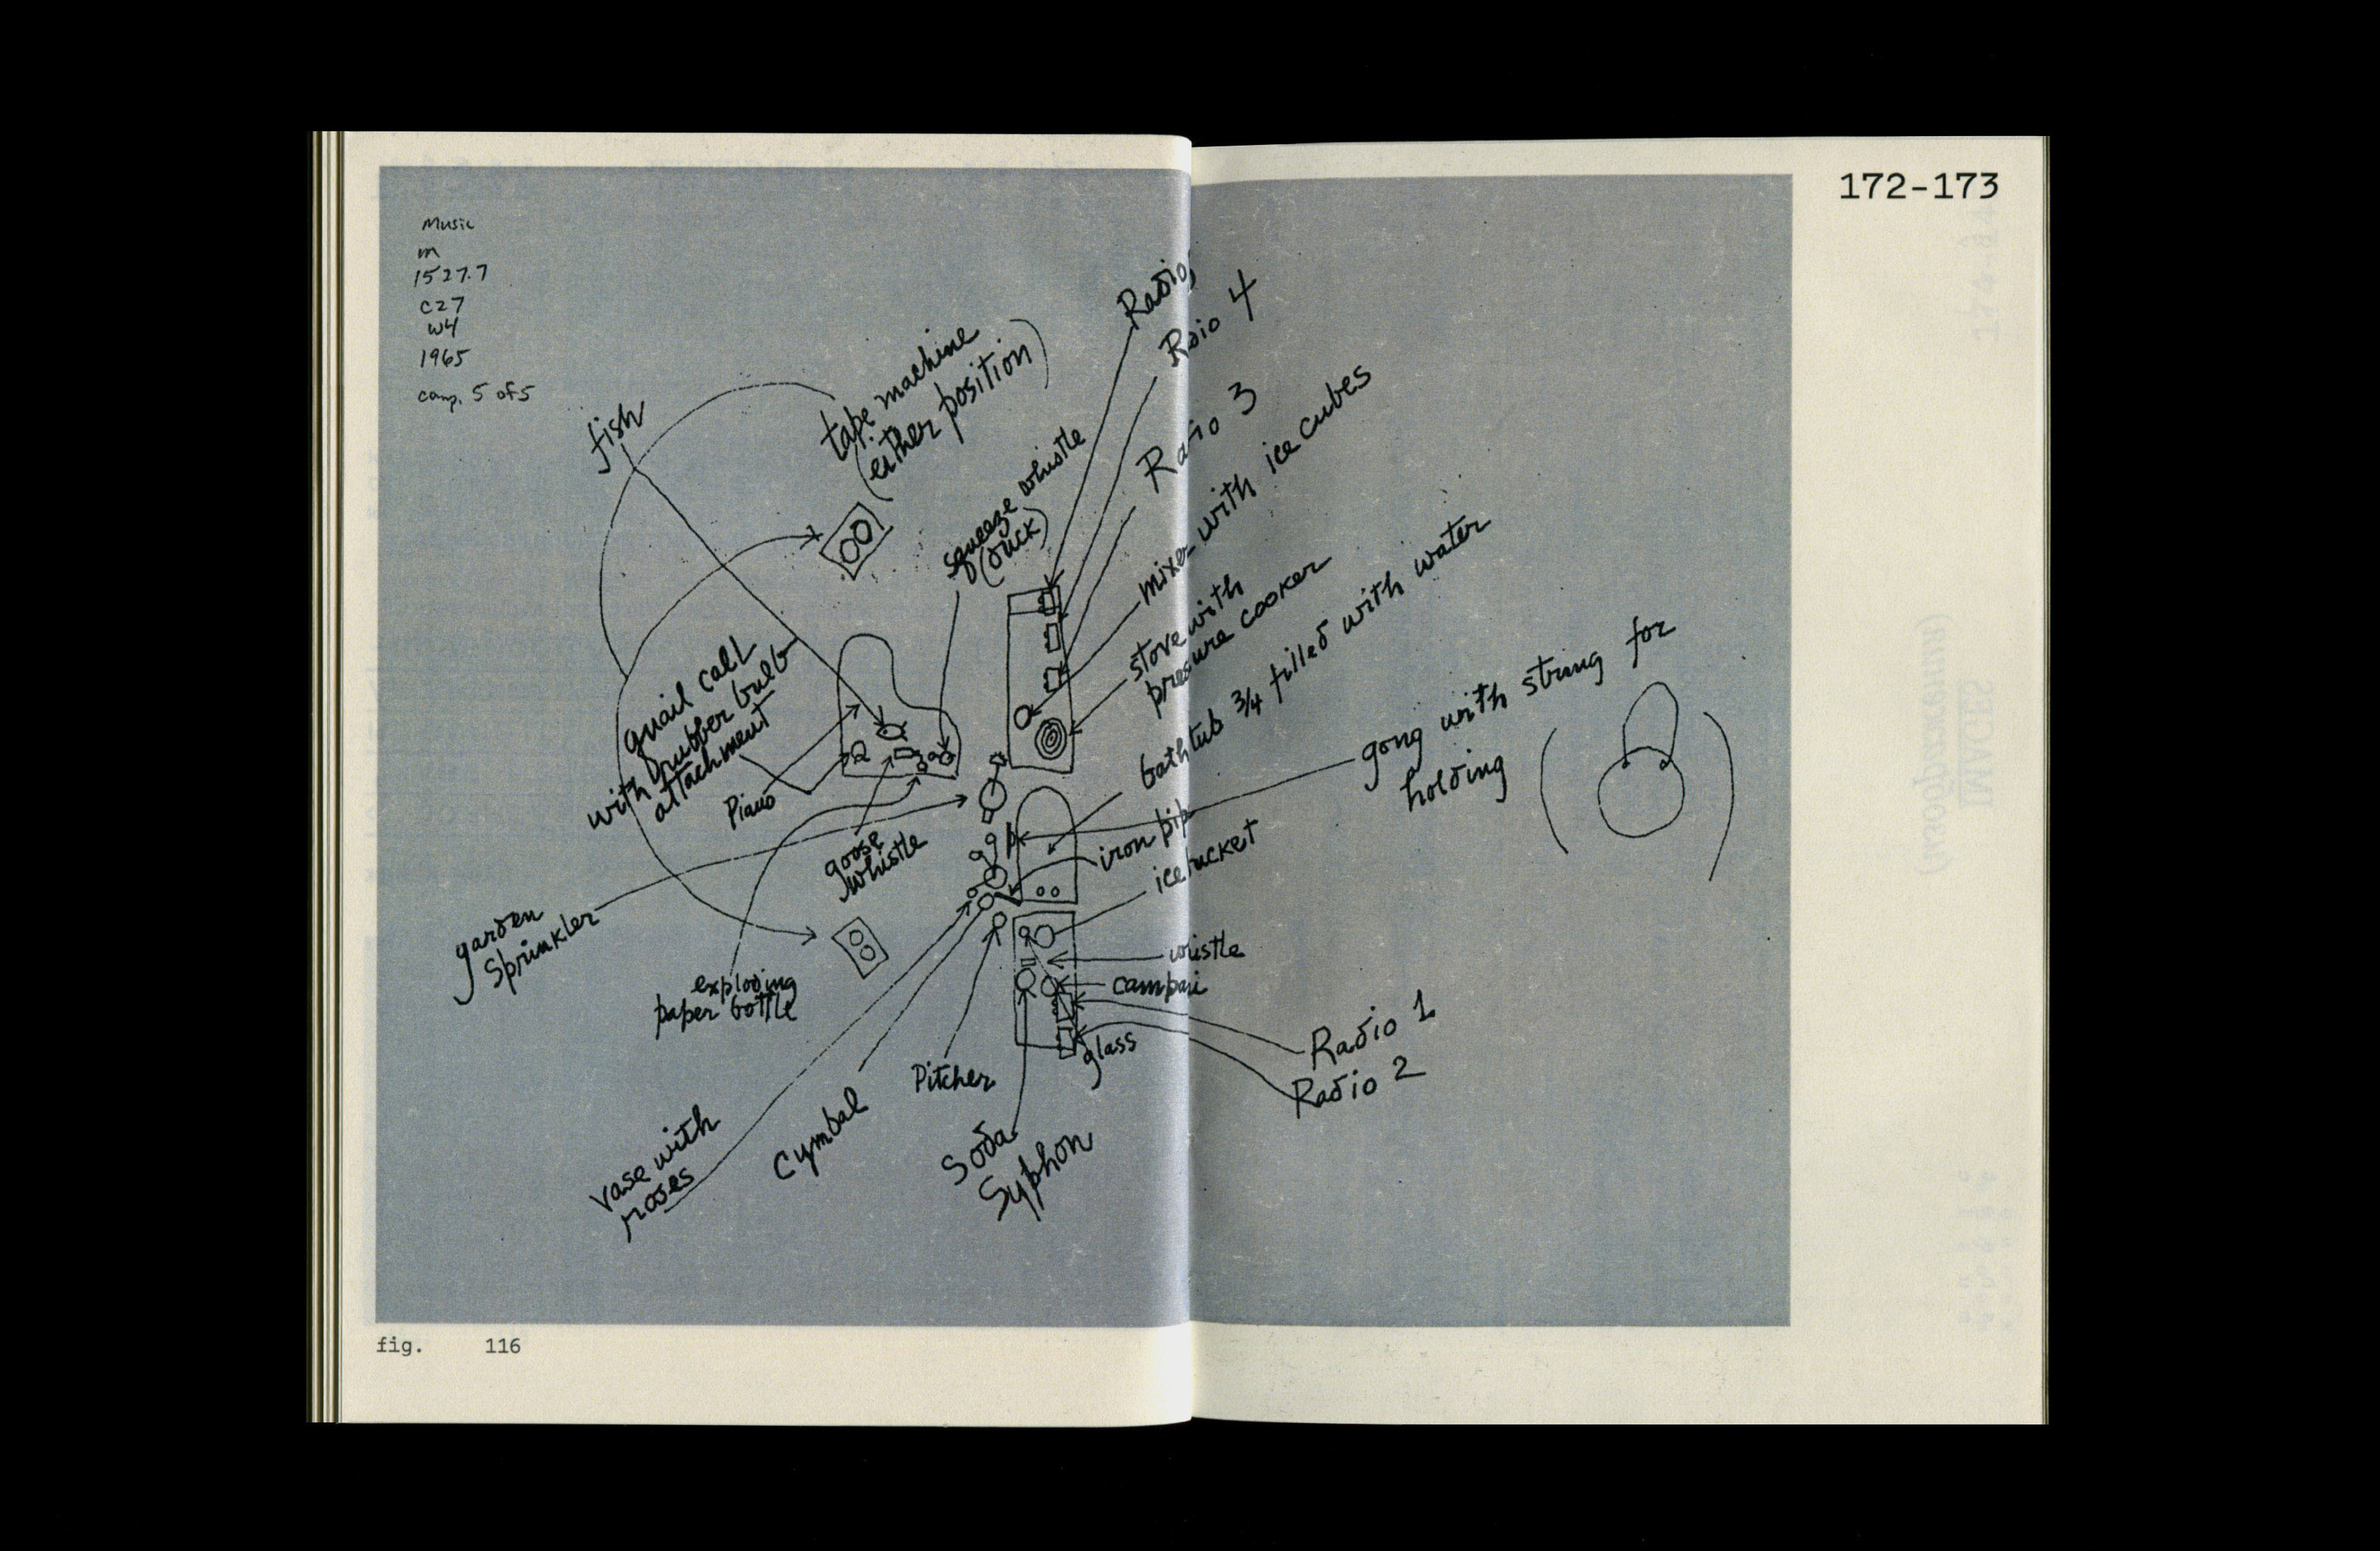 172-173
Music
m
1527.7
C27
W4
1965
comp. 5 of 5
fish
tape machine
(either position)
squeeze whistle
(duck)
Radio
Radio 4
Radio 3
mixer with ice cubes
stove with
pressure cooker
bathtub 3/4 filled with water
gong with string for
holding
quail call
with rubber bulb
attachment
Piano
goose
whistle
iron pipe
ice bucket
garden
sprinkler
exploding
paper bottle
whistle
campari
glass
Radio 1
Radio 2
Pitcher
Cymbal
Soda
Syphon
vase with
roses
fig. 116